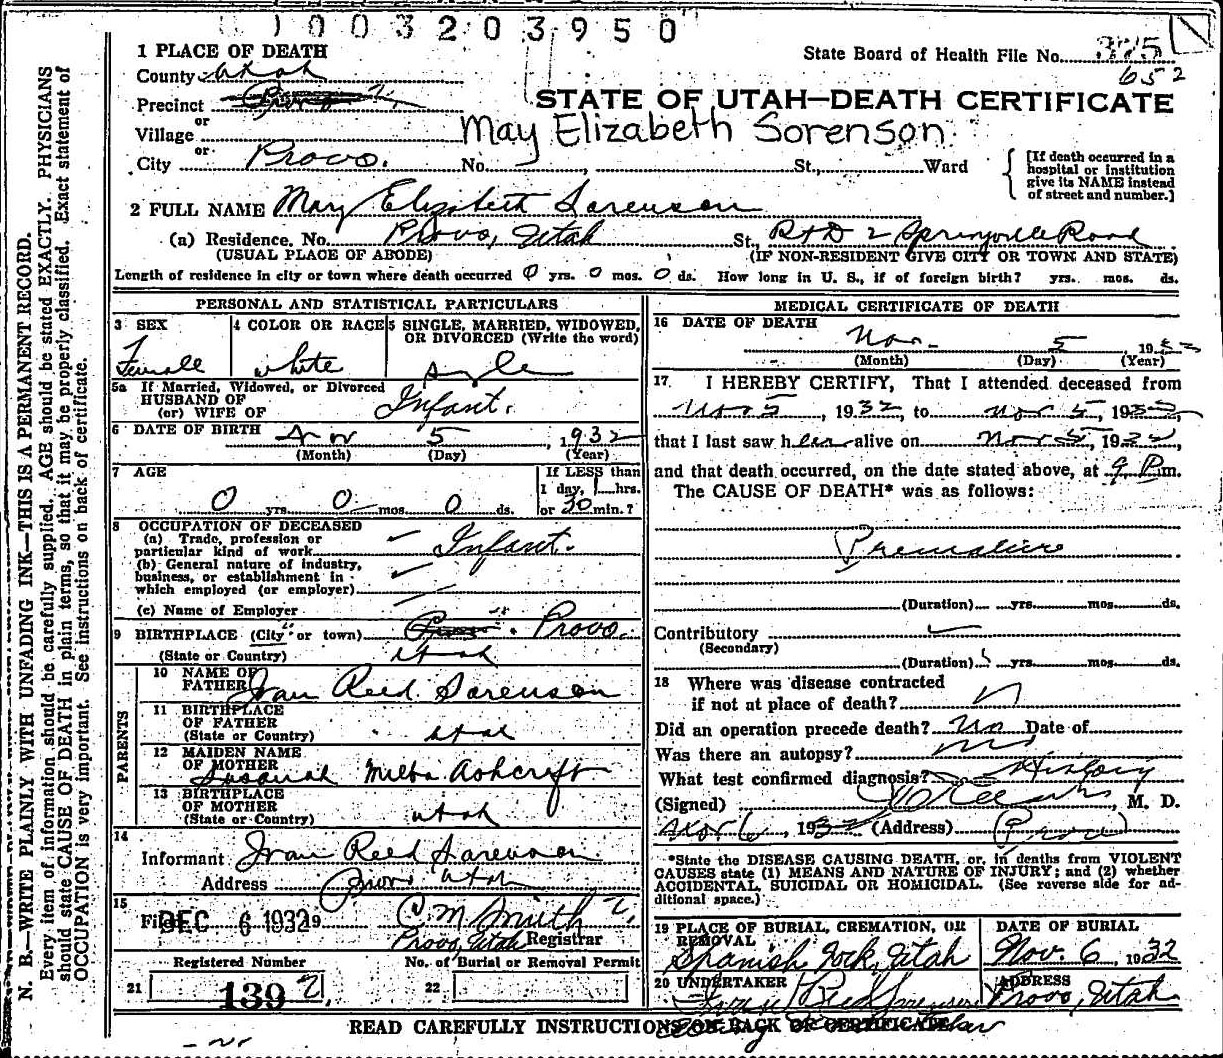 1003203950
1 PLACE OF DEATH
State Board of Health File No. 375
County Utah
652
Precinct Provo 2,
STATE OF UTAH—DEATH CERTIFICATE
or
Village
May Elizabeth Sorenson
or
City Provo. No. , St., Ward
[If death occurred in a
hospital or institution
give its NAME instead
of street and number.]
2 FULL NAME May Elizabeth Sorenson
(a) Residence, No. Provo, Utah St., RFD 2 Springville Road
(USUAL PLACE OF ABODE) (IF NON-RESIDENT GIVE CITY OR TOWN AND STATE)
Length of residence in city or town where death occurred 0 yrs. 0 mos. 0 ds. How long in U. S., if of foreign birth? yrs. mos. ds.
PERSONAL AND STATISTICAL PARTICULARS
3 SEX
Female
4 COLOR OR RACE
white
5 SINGLE, MARRIED, WIDOWED,
OR DIVORCED (Write the word)
Single
5a If Married, Widowed, or Divorced
HUSBAND OF
(or) WIFE OF
Infant.
6 DATE OF BIRTH Nov 5, 1932
(Month) (Day) (Year)
7 AGE
0 yrs. 0 mos. 0 ds.
If LESS than
1 day, hrs.
or 30 min.?
8 OCCUPATION OF DECEASED
(a) Trade, profession or
particular kind of work Infant.
(b) General nature of industry,
business, or establishment in
which employed (or employer)
(c) Name of Employer
9 BIRTHPLACE (City or town) Provo.
(State or Country) Utah
PARENTS
10 NAME OF
FATHER Ivan Reed Sorenson
11 BIRTHPLACE
OF FATHER
(State or Country) Utah
12 MAIDEN NAME
OF MOTHER
Susanah Melba Ashcroft
13 BIRTHPLACE
OF MOTHER
(State or Country) Utah
14
Informant Ivan Reed Sorenson
Address Provo Utah
15
Filed DEC 6 1932 C. M. Smith
Provo, Utah Registrar
Registered Number
No. of Burial or Removal Permit
21 139 2,
22
MEDICAL CERTIFICATE OF DEATH
16 DATE OF DEATH
Nov. 5 1932
(Month) (Day) (Year)
17 I HEREBY CERTIFY, That I attended deceased from
Nov 5, 1932, to Nov 5, 1932,
that I last saw her alive on Nov 5, 1932,
and that death occurred, on the date stated above, at 9 P.m.
The CAUSE OF DEATH* was as follows:
Premature
(Duration) yrs. mos. ds.
Contributory
(Secondary)
(Duration) yrs. mos. ds.
18 Where was disease contracted
if not at place of death?
Did an operation precede death? No Date of
Was there an autopsy? No
What test confirmed diagnosis? History
(Signed) , M. D.
Nov 6, 1932 (Address) Provo
*State the DISEASE CAUSING DEATH, or, in deaths from VIOLENT
CAUSES state (1) MEANS AND NATURE OF INJURY; and (2) whether
ACCIDENTAL, SUICIDAL OR HOMICIDAL. (See reverse side for ad-
ditional space.)
19 PLACE OF BURIAL, CREMATION, OR
REMOVAL
Spanish Fork, Utah
DATE OF BURIAL
Nov. 6, 1932
20 UNDERTAKER
Ivan Reed Sorenson
ADDRESS
Provo, Utah
READ CAREFULLY INSTRUCTIONS ON BACK OF CERTIFICATE
N. B.—WRITE PLAINLY WITH UNFADING INK—THIS IS A PERMANENT RECORD.
Every item of information should be carefully supplied. AGE should be stated EXACTLY. PHYSICIANS
should state CAUSE OF DEATH in plain terms, so that it may be properly classified. Exact statement of
OCCUPATION is very important. See instructions on back of certificate.